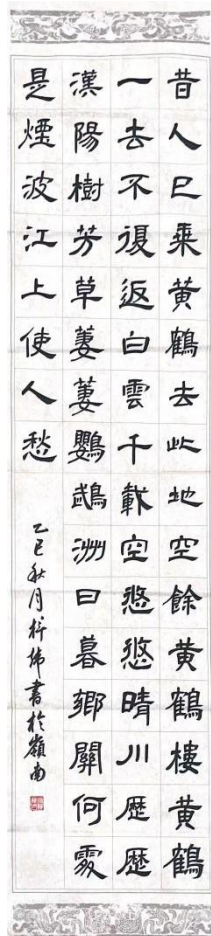 昔人已乘黃鶴去此地空餘黃鶴樓黃鶴
一去不復返白雲千載空悠悠晴川歷歷
漢陽樹芳草萋萋鸚鵡洲日暮鄉關何處
是煙波江上使人愁
乙巳秋月書於嶺南